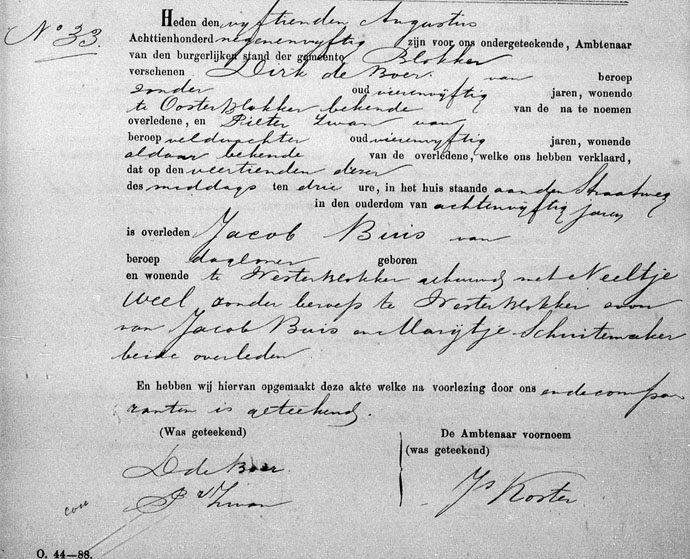 No 33.
Heden den vyftienden Augustus
Achttienhonderd negenenvyftig zijn voor ons ondergeteekende, Ambtenaar
van den burgerlijken stand der gemeente Blokker
verschenen Dirk de Boer. van beroep
zonder oud vierenvyftig jaren, wonende
te Oosterblokker bekende van de na te noemen
overledene, en Pieter Zwan van
beroep veldwachter oud vierenvyftig jaren, wonende
aldaar bekende van de overledene, welke ons hebben verklaard,
dat op den veertienden dezer
des middags ten drie ure, in het huis staande aan den Straatweg
in den ouderdom van achtenvyftig jaren
is overleden Jacob Buis van
beroep daglooner geboren
en wonende te Westerblokker gehuwd met Neeltje
Weel, zonder beroep te Westerblokker zoon
van Jacob Buis en Marijtje Schuitemaker
beide overleden
En hebben wij hiervan opgemaakt deze akte welke na voorlezing door ons en de compa
ranten is geteekend.
(Was geteekend)
De Ambtenaar voornoem
(was geteekend)
D de Boer.
P Zwan
Js Koster
O. 44—88.